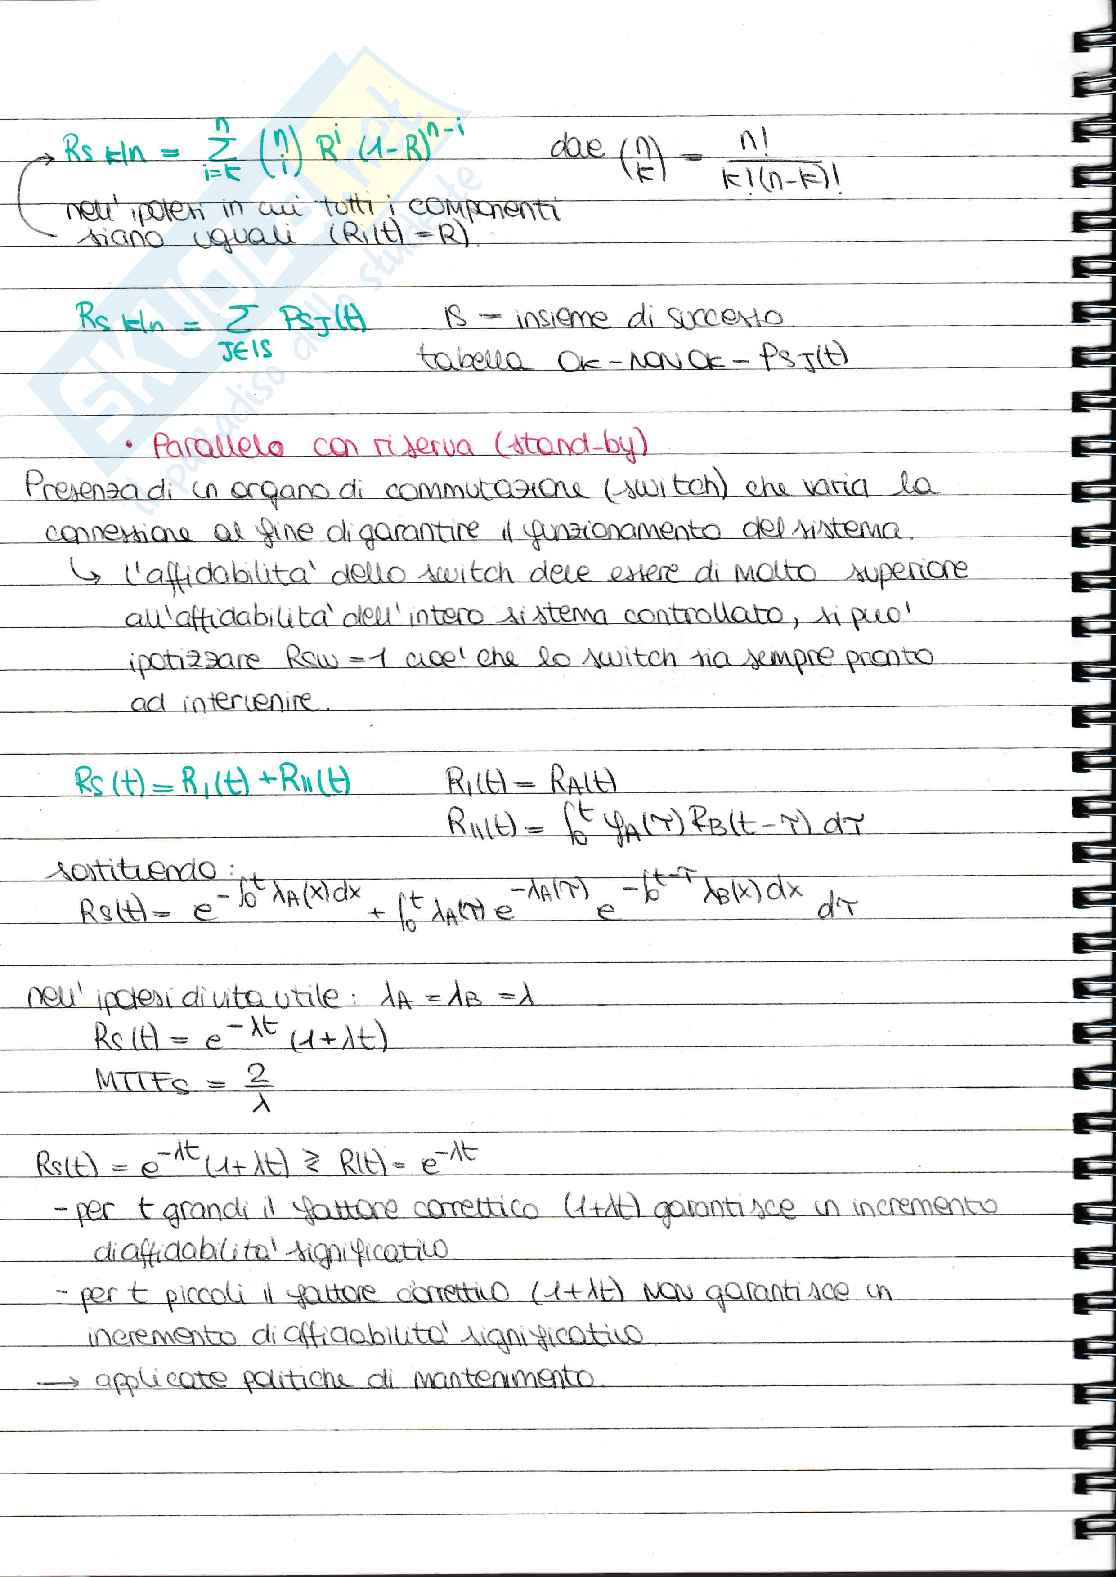 Rs k|n = Σ_{i=k}^{n} (n i) R^i (1-R)^{n-i} dove (n k) = n! / k!(n-k)!
nell'ipotesi in cui tutti i componenti
siano uguali (Ri(t) = R)
Rs k|n = Σ_{J∈IS} PSJ(t) IS - insieme di successo
tabella OK - NON OK - PSJ(t)
• Parallelo con riserva (stand-by)
Presenza di un organo di commutazione (switch) che varia la
connessione al fine di garantire il funzionamento del sistema.
↳ l'affidabilità dello switch deve essere di molto superiore
all'affidabilità dell'intero sistema controllato, si può
ipotizzare RSW = 1 cioè che lo switch sia sempre pronto
ad intervenire.
Rs(t) = R_I(t) + R_II(t) R_I(t) = R_A(t)
R_II(t) = ∫_0^t f_A(τ) R_B(t-τ) dτ
sostituendo:
Rs(t) = e^{-∫_0^t λ_A(x)dx} + ∫_0^t λ_A(τ) e^{-λ_A(τ)} e^{-∫_0^{t-τ} λ_B(x)dx} dτ
nell'ipotesi di vita utile: λ_A = λ_B = λ
Rs(t) = e^{-λt} (1+λt)
MTTFs = 2/λ
Rs(t) = e^{-λt} (1+λt) ≥ R(t) = e^{-λt}
- per t grandi il fattore correttivo (1+λt) garantisce un incremento
di affidabilità significativo
- per t piccoli il fattore correttivo (1+λt) NON garantisce un
incremento di affidabilità significativo
→ applicate politiche di mantenimento.
SKUOLA.net
il paradiso dello studente